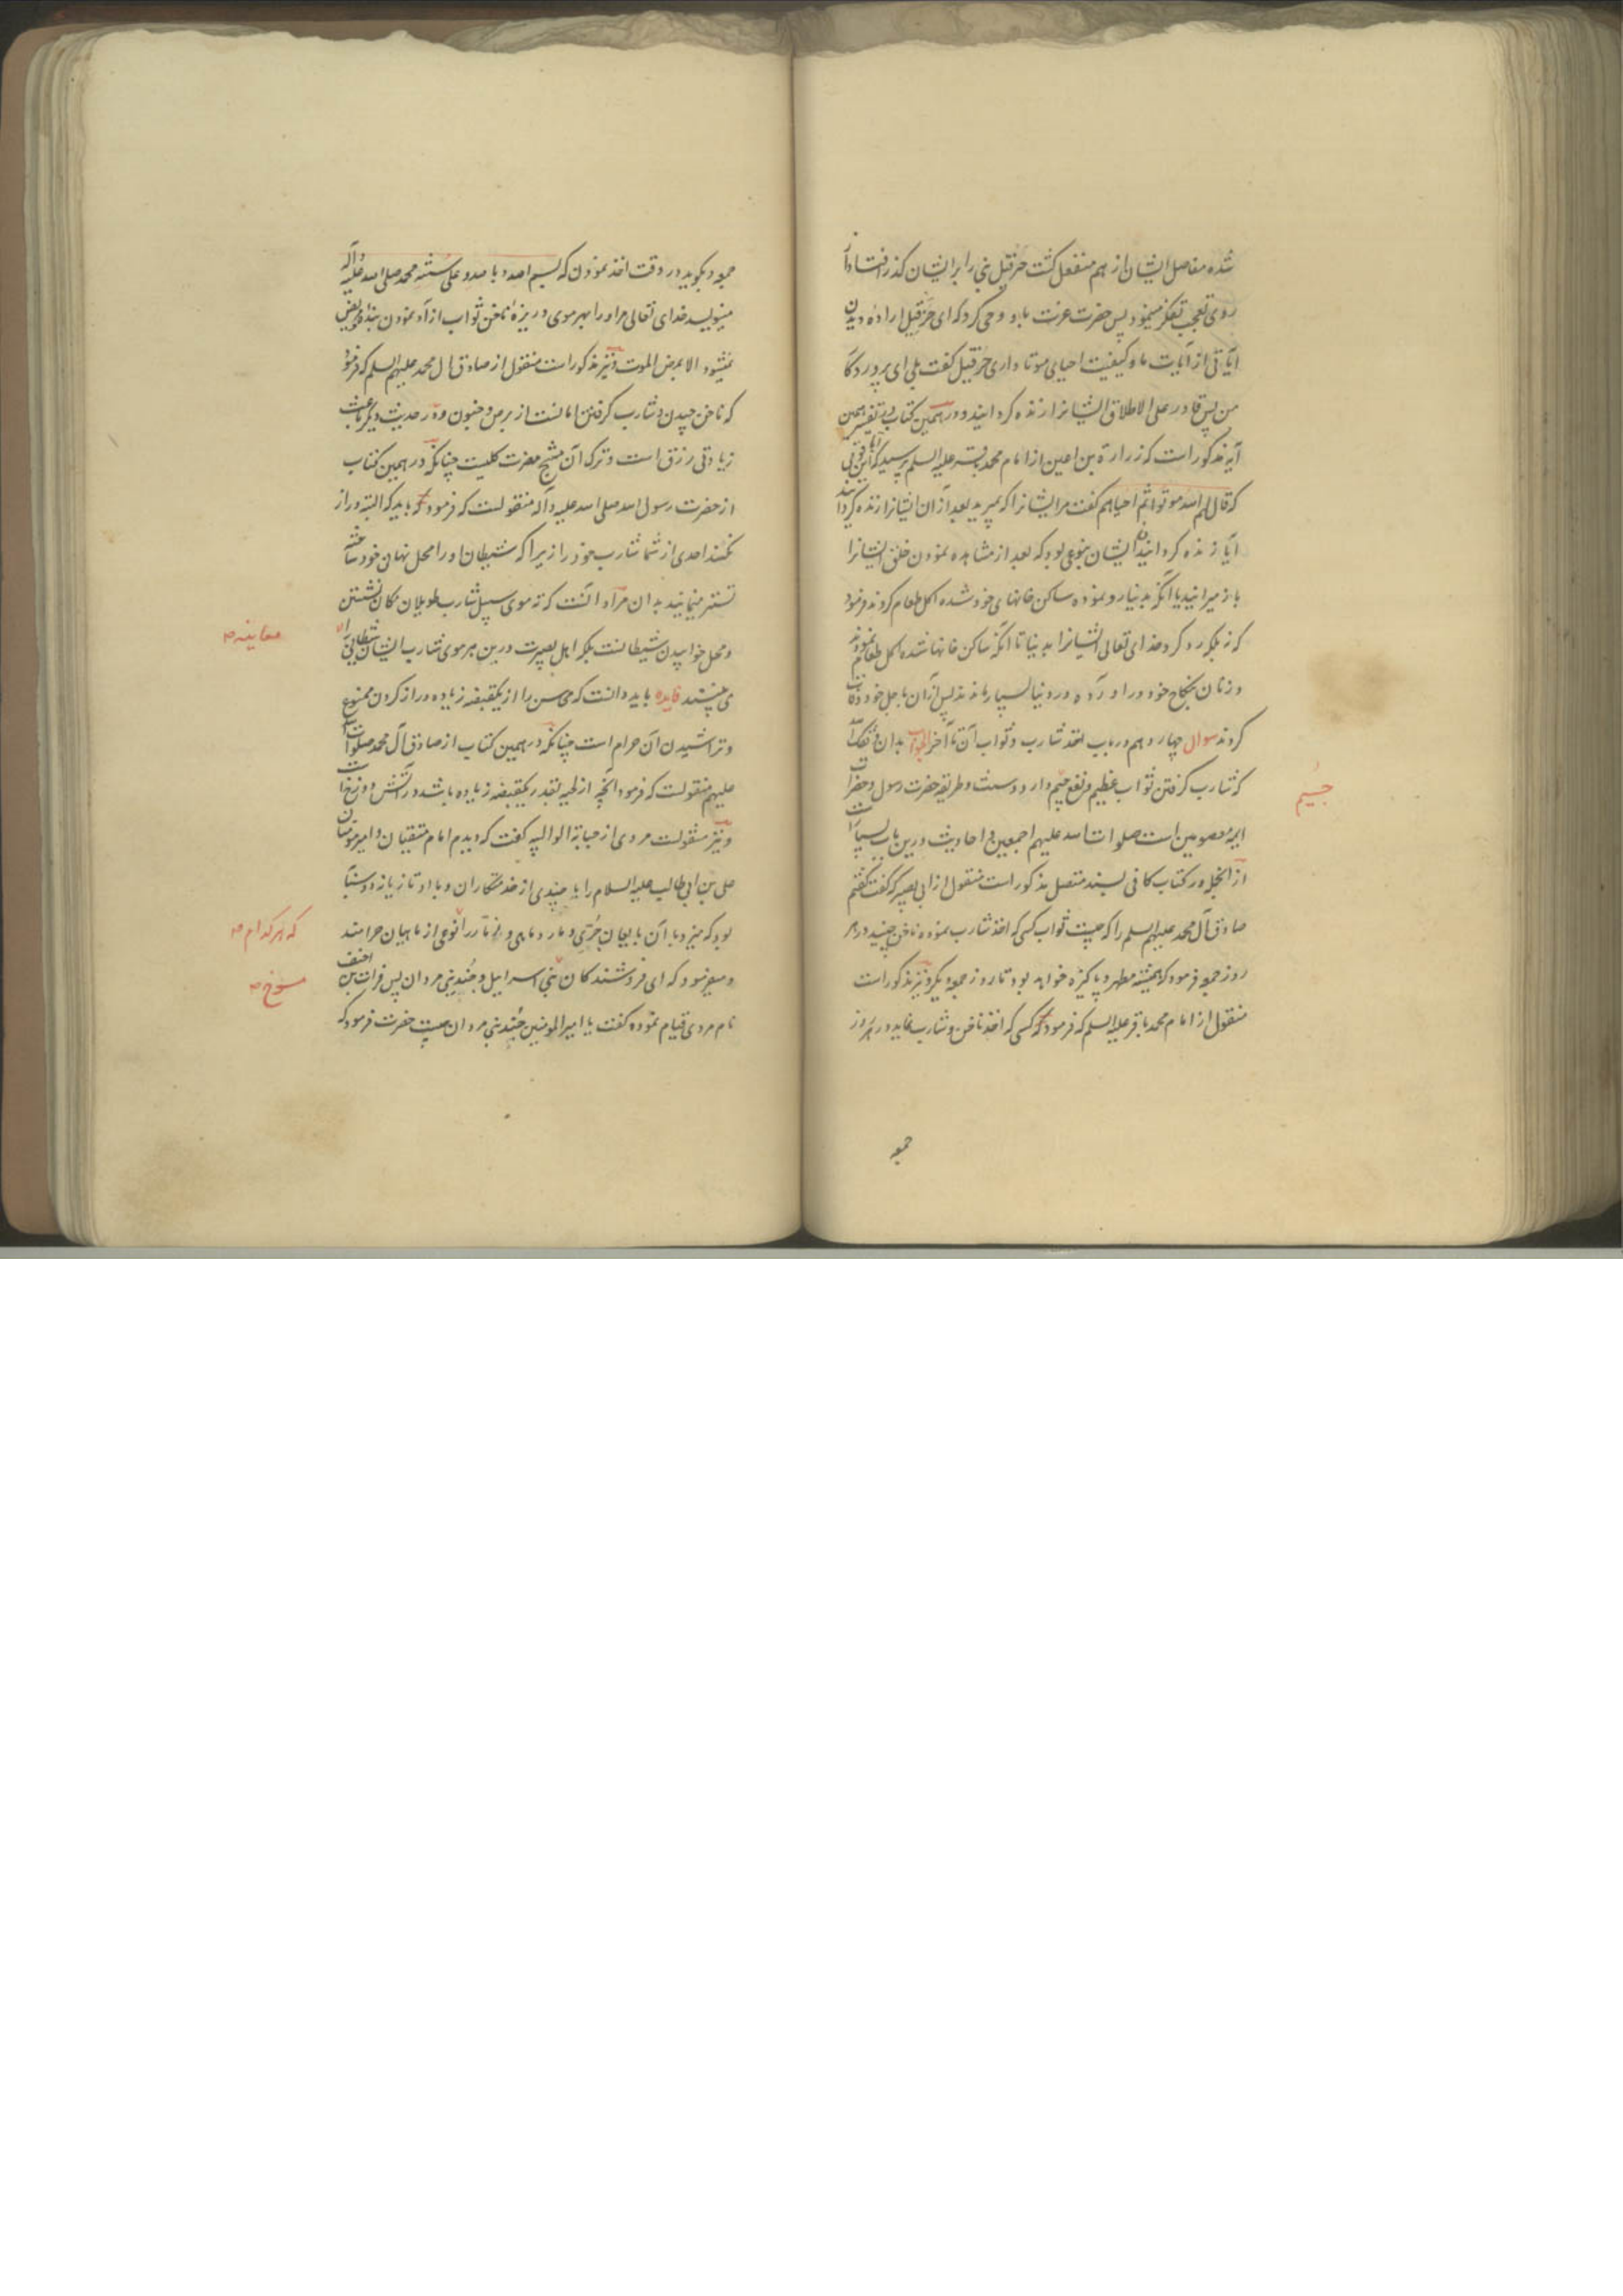 شده مفاصل ایشان از هم منفصل گشت حزقیل نبی را بر ایشان گذر افتاد از
روی تعجب تفکر مینمود پس حضرت عزت باو وحی کرد که ای حزقیل اراده دیدن
آیاتی از آیات ما و کیفیت احیای موتا داری حزقیل گفت بلی ای پروردگار
من پس قادر علی الاطلاق ایشانرا زنده گردانید و در همین کتاب در تفسیر همین
آیه مذکور است که زرارة بن اعین از امام محمد باقر علیه السلم پرسید که آیا این قوم
که قال لهم الله موتوا ثم احیاهم گفت مر ایشانرا که بمیرید بعد از آن ایشانرا زنده گردانید
آیا زنده گردانیدن ایشان بنوعی بود که بعد از مشاهده نمودن خلق ایشانرا
باز میرانید یا آنکه بدنیا رد نموده ساکن خانهای خود شده اکل طعام کردند فرمود
که نه بلکه رد کرد خدای تعالی ایشانرا بدنیا تا آنکه ساکن خانها شده اکل طعام نمودند
و زنان بنکاح خود در اورده و در دنیا بسیار ماندند پس از آن باجل خود وفات
کردند سوال چهاردهم در باب اخذ شارب و ثواب آن تا آخر الجواب بدان وفقک الله
که شارب گرفتن ثواب عظیم و نفع جسیم دارد و سنت و طریقه حضرت رسول و حضرات
ایمه معصومین است صلوات الله علیهم اجمعین و احادیث درین باب بسیار است
از آنجمله در کتاب کافی بسند متصل مذکور است منقول از ابی بصیر که گفت گفتم
صادق آل محمد علیهم السلم را که چیست ثواب کسی که اخذ شارب نموده ناخن چیند در هر
روز جمعه فرمود که همیشه مطهر و پاکیزه خواهد بود تا روز جمعه دیگر و نیز مذکور است
منقول از امام محمد باقر علیه السلم که فرمود که کسی که اخذ ناخن و شارب نماید در هر روز
جمعه
جسیم
جمعه و بگوید در وقت اخذ نمودن که بسم الله و بالله و علی سنته محمد صلی الله علیه و آله
مینویسد خدای تعالی مر او را بهر موی و ریزهٔ ناخن ثواب آزاد نمودن بندهٔ و مریض
نمیشود الا بمرض الموت و نیز مذکور است منقول از صادق ال محمد علیهم السلم که فرمود
که ناخن چیدن و شارب گرفتن امانست از برص و جنون و در حدیث دیگر باعث
زیادتی رزق است و ترک آن منتج مضرت کلیست چنانکه در همین کتاب
از حضرت رسول الله صلی الله علیه و آله منقولست که فرمود که باید که البته دراز
نکند احدی از شما شارب خود را زیرا که شیطان او را محل نهان خود ساخته
تستر مینماید بدان مراد آنست که ته موی سبیل شارب طویلان مکان نشستن
و محل خوابیدن شیطانست بلکه اهل بصیرت در بن هر موی شارب ایشان شیطانی را
می بینند فایده باید دانست که محاسن را از یکقبضه زیاده دراز کردن ممنوع
و تراشیدن آن حرام است چنانکه در همین کتاب از صادق آل محمد صلوات الله
علیهم منقولست که فرمود آنچه از لحیه بقدر یکقبضه زیاده باشد در آتش دوزخ است
و نیز منقولست مروی از حبابة الوالبیه که گفت که دیدم امام متقیان و امیر مومنان
علی بن ابی طالب علیه السلام را با چندی از خدمتکاران و با او تازیانهٔ دو سبابه
بود که میزد با آن بایعان جری و مار ماهی و زمار را نوعی از ماهیان حرامند
و میفرمود که ای فروشندکان بنی اسرائیل و جند بنی مروان پس فرات بن احنف
نام مردی قیام نموده گفت یا امیر المومنین جند بنی مروان چیست حضرت فرمود که
معاینه
که هر کدام
مسوخ